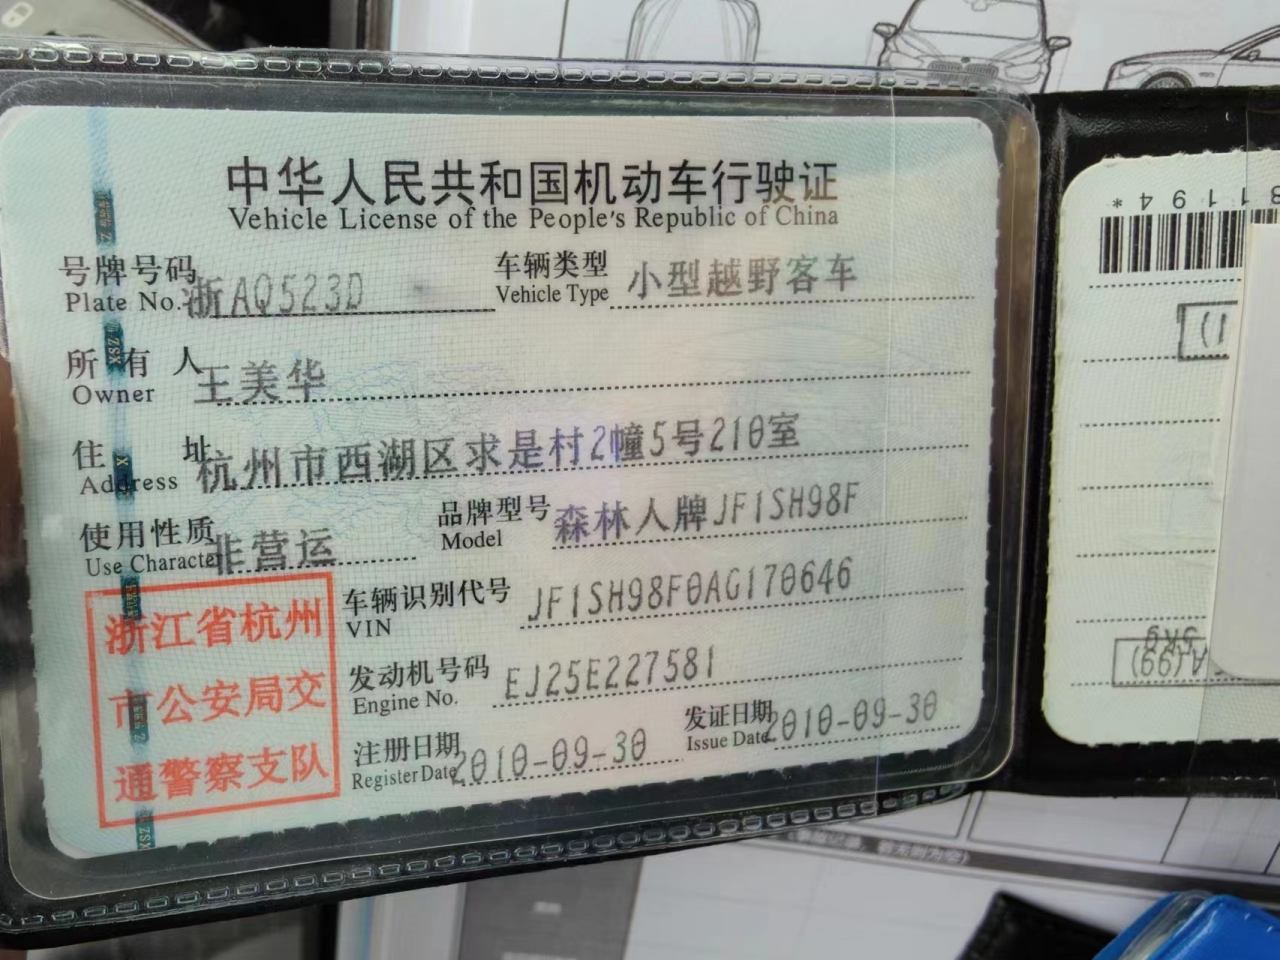 中华人民共和国机动车行驶证
Vehicle License of the People's Republic of China
号牌号码 浙AQ523D 车辆类型 小型越野客车
Plate No. Vehicle Type
所有人 王美华
Owner
住址 杭州市西湖区求是村2幢5号210室
Address
使用性质 非营运 品牌型号 森林人牌JF1SH98F
Use Character Model
浙江省杭州
市公安局交
通警察支队
车辆识别代号 JF1SH98F0AG170646
VIN
发动机号码 EJ25E227581
Engine No.
注册日期 2010-09-30 发证日期 2010-09-30
Register Date Issue Date
1194*